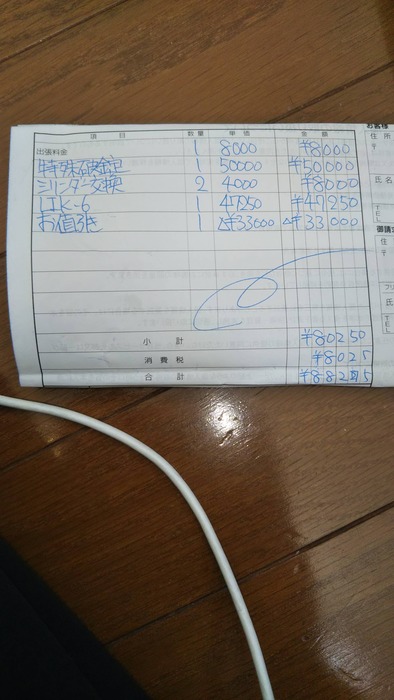 項目 数量 単価 金額
出張料金 1 8000 ¥8000
特殊破錠 1 50000 ¥50000
シリンダー交換 2 4000 ¥8000
LIX-6 1 47250 ¥47250
お値引き 1 △¥33000 △¥33000
小計 ¥80250
消費税 ¥8025
合計 ¥88275
お客様
住所
〒
氏名
TEL
御請
住
〒
フリ
氏
TEL